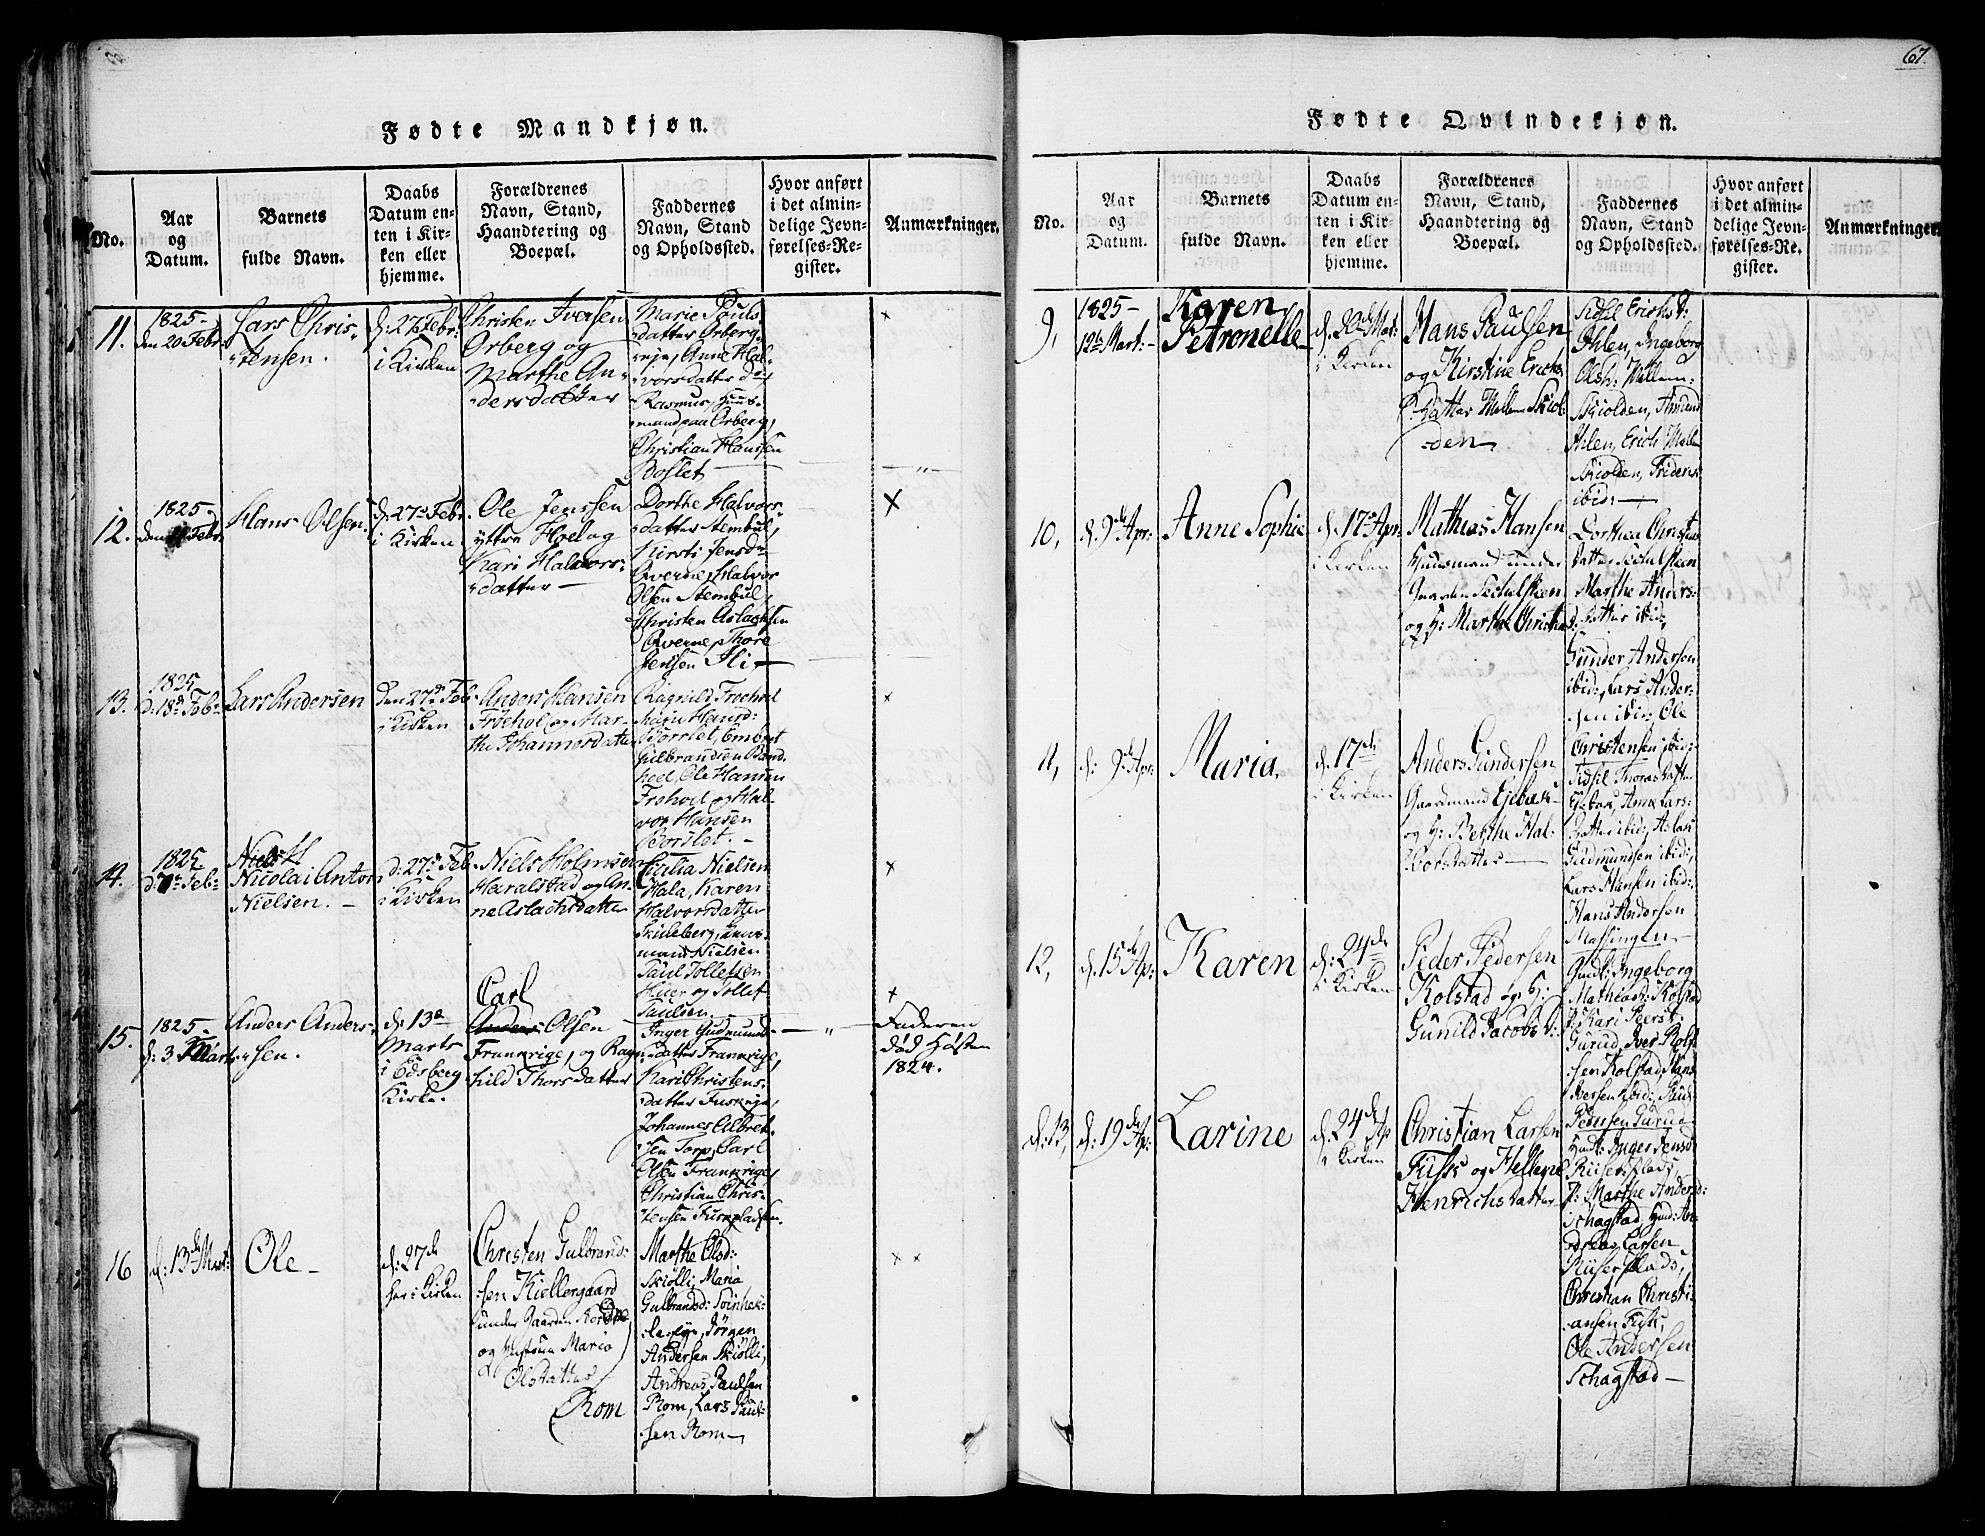 67.
Fødte Mandkjøn.
No.
Aar
og
Datum.
Barnets
fulde Navn.
Daabs
Datum en-
ten i Kir-
ken eller
hjemme.
Forældrenes
Navn, Stand,
Haandtering og
Boepæl.
Faddernes
Navn, Stand
og Opholdssted.
Hvor anført
i det almin-
delige Jevn-
førelses-Re-
gister.
Anmærkninger.
11.
1825-
den 20 Febr.
Lars Chris-
tensen.
d: 27d Febr:
i Kirken
Christen Iversen
Ørberg og
Marthe An-
dersdatter
Marie Pouls
datter Ørberg
Anne Hal-
vorsdatter do
Rasmus Huus-
mand paa Ørberg,
Christian Hanssen
Boslet
×
12.
1825-
den Febr.
Hans Olsen.
d: 27d Febr
i Kirken
Ole Jenssen
yttre Hoel og
Kari Halvors-
datter
Dorthe Halvors-
datter Stembul,
Kirsti Jensd
Qverne, Halvor
Olsen Stembul,
Christen Aslachsen
Qverne, Thore
Jenssen Hie
×
13.
1825
d: 18d Feb
Lars Andersen
den 27de Feb:
i Kirken
Anders Hansen
Froehol og Mar-
the Johannesdatter
Ragnild Froehol
Karn Hansd:
Borslet, Embret
Gulbrandsen
Ole Hansen
Frohol og Hal-
vor Hansen
Borslet.
×
14.
1825
d: 7de Feb
Niels H
Nicolai Anton
Nielsen.
d: 27de Feb
i Kirken
Niels Holmsen
Haralstad og An-
ne Aslachsdatter
Cicilia Nielsen
Hala, Karen
Halvorsdatter
Skuleberg,
Nielsen
Paul Tollefsen
Huer og Tollef
Paulsen.
×
15.
1825-
d: 3 Marts
Anders Anders-
sen.
d: 13de
Marts
i Edsberg
Kirke.
Carl
Anders Olsen
Frankrige, og Rag-
hild Thorsdatter
Inger Gudmund-
datter Frankrige,
Kari Christens-
datter
Johannes Albret-
sen Torp, Carl
Olsen Frankrige
Christian Chris-
tensen
×
Faderen
død Høsten
1824.
16
d: 13de Mart:
Ole
d: 27de
her i Kirken
Christen Gulbrand-
sen Kiellergaard
under Gaarden
og Hustrue Maria
Olsdatter
Rom
Marthe Olsd:
Skiølli, Maria
Gulbrandsd:
Jørgen
Andersen Skiølli,
Andreas Paulsen
Rom, Lars Paul-
sen Rom
× ×
Fødte Qvindekjøn.
No.
Aar
og
Datum.
Barnets
fulde Navn.
Daabs
Datum en-
ten i Kir-
ken eller
hjemme.
Forældrenes
Navn, Stand,
Haandtering og
Boepæl.
Faddernes
Navn, Stand
og Opholdssted.
Hvor anført
i det almin-
delige Jevn-
førelses-Re-
gister.
Anmærkninger.
9,
1825-
12te Mart:
Karen
Petronelle
d. 20de Mat:
i Kirken
Hans Paulsen
og Kirstine Erichs
Datter Mellem Skiol-
den
Erichsd:
Ihlen, Ingeborg
Olsd: Mellem-
Skiolden, Amund
Ihlen, Erich Mellem
Skiolden, Friderik
ibid:
10,
d. 9de Apr:
Anne Sophie
d. 17de Apr:
i Kirken
Mathias Hansen
Huusmand under
Gaarden
og H: Marthe Christensd:
Dorthea Christens
datter
Marthe Anders-
datter ibid,
Gunder Andersen
ibid, Lars Ander-
sen ibid: Ole
Christensen ibid:
11,
d: 9de Apr:
Maria,
d. 17de
i Kirken
Anders Gundersen
Gaardmand Ejebæk
og H: Berthe Hal-
vorsdatter
Sidsil Thorasdatter
Ejebæk, Anne Lars-
datter ibid, Aslak
Gudmundsen ibid;
Lars Hansen ibid:
Hans Andersen
Massingen
12,
d. 15de Ap:
Karen
d: 24de
i Kirken
Peder Pedersen
Kolstad og H:
Gunild Jacobsd:
Ingeborg
Mathiasd: Kolstad
P: Kari Iverst:
Gurud, Iver Rolf-
sen Kolstad, Hans
Iversen ibid:, Paul
Pedersen Gurud
d: 13,
d: 19de Ap:
Larine
d: 24de Ap
i Kirken
Christian Larsen
Fusk og Hellene
Henrichsdatter
Inger Jensd
Riisersplads,
P: Marthe Andersd:
Schagstad, An-
dreas Larsen
Riisersplads,
Christian Christi-
ansen Fusk,
Ole Andersen
Schagstad